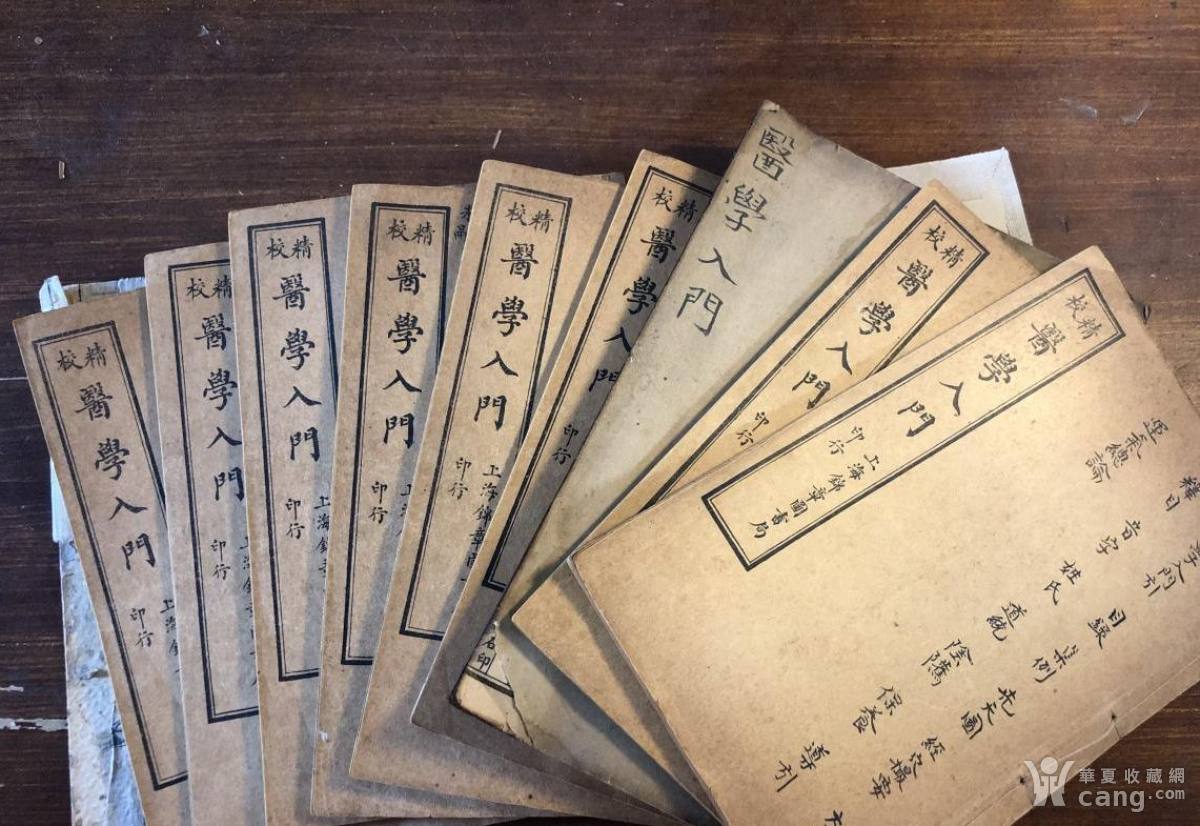 精校
醫學入門
上海錦
印行
精校
醫學入門
上海錦章
印行
精校
醫學入門
上海錦章
印行
精校
醫學入門
上海
印行
精校
醫學入門
上海錦章圖
印行
精校
醫學入門
印行
石印
醫學入門
精校
醫學入門
印行
精校
醫學入門
上海錦章圖書局
印行
學入門引
目錄
集例
先天圖
音字
姓氏
道統
陰隲
保養
導引
運氣總論
華夏收藏網
cang.com